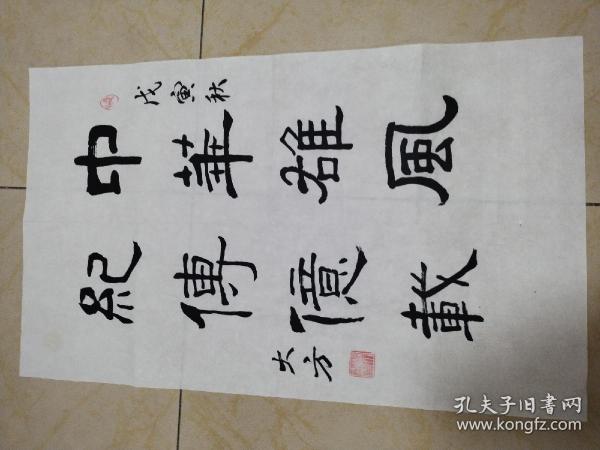 戊寅秋
中華雄風
紀傳億載
大方
孔夫子旧書网
www.kongfz.com